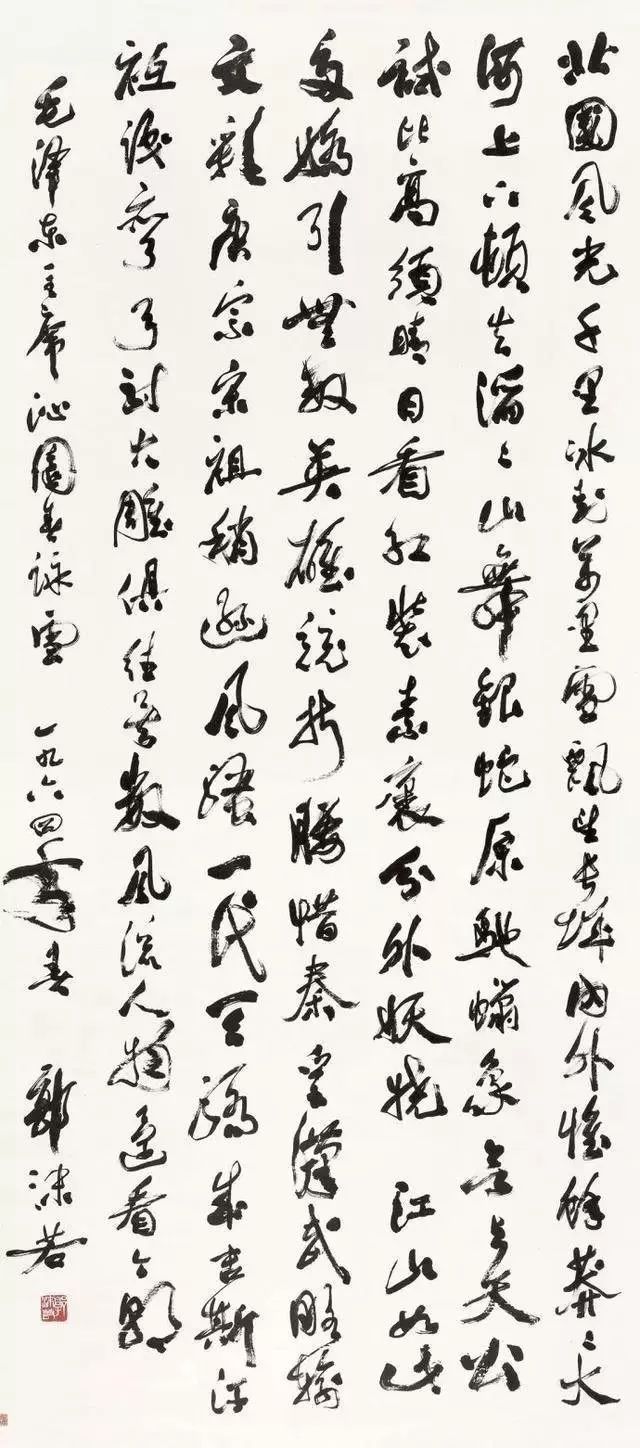 北國風光千里冰封萬里雪飄望長城內外惟餘莽〻大
河上下頓失滔〻山舞銀蛇原馳蠟象欲与天公
試比高須晴日看紅裝素裹分外妖嬈 江山如此
多嬌引無數英雄競折腰惜秦皇漢武略輸
文彩唐宗宋祖稍遜風騷一代天驕成吉斯汗
祗識彎弓射大雕俱往矣數風流人物還看今朝
毛澤東主席沁園春詠雪 一九六四年春 郭沫若